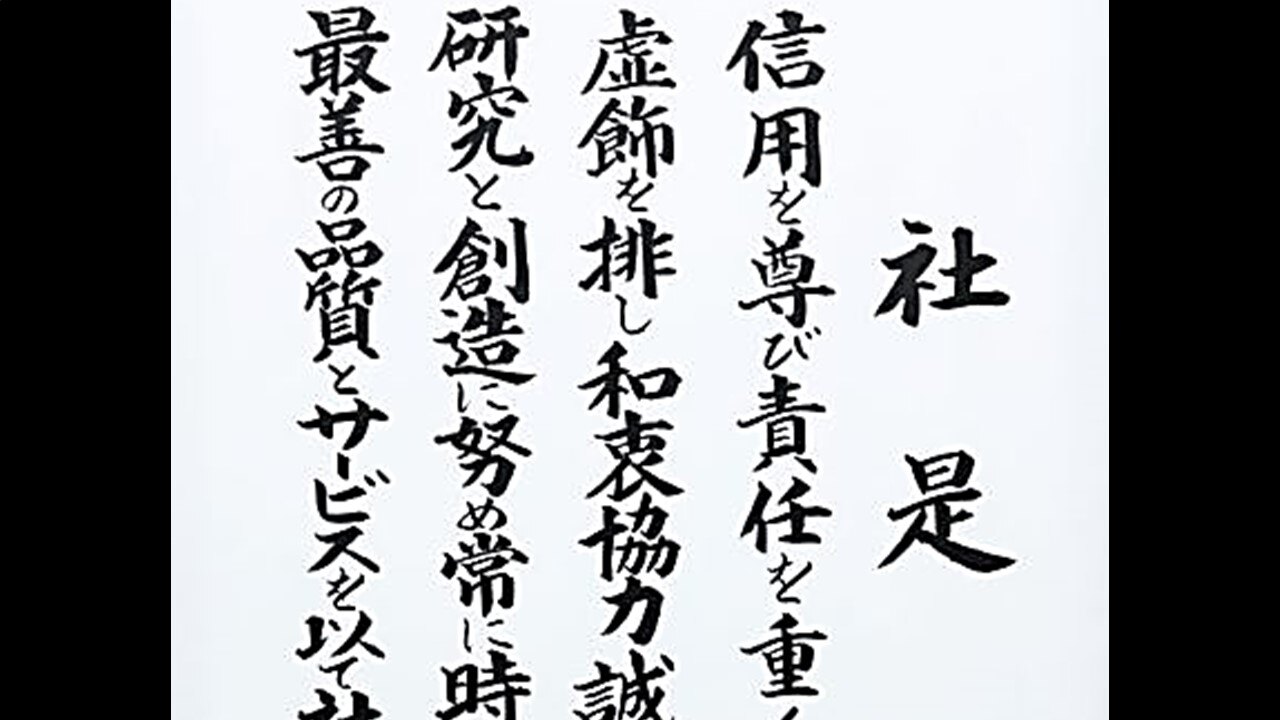 社是
信用を尊び責任を重
虚飾を排し和衷協力誠
研究と創造に努め常に時
最善の品質とサービスを以て社